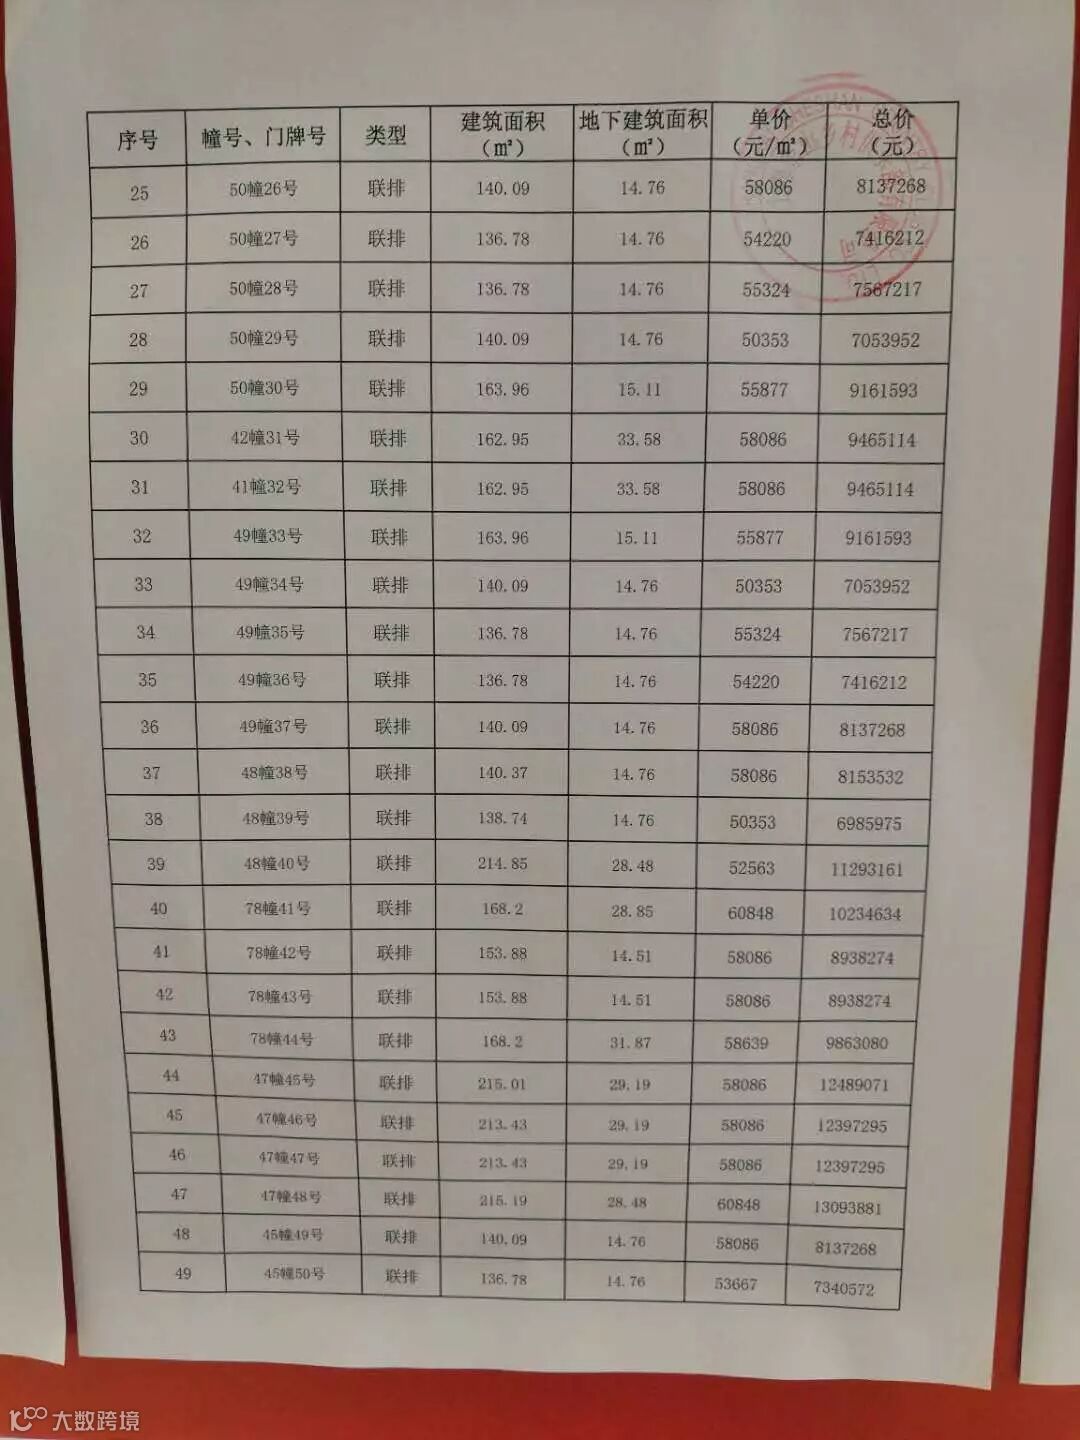 序号 幢号、门牌号 类型 建筑面积(㎡) 地下建筑面积(㎡) 单价(元/㎡) 总价(元)
25 50幢26号 联排 140.09 14.76 58086 8137268
26 50幢27号 联排 136.78 14.76 54220 7416212
27 50幢28号 联排 136.78 14.76 55324 7567217
28 50幢29号 联排 140.09 14.76 50353 7053952
29 50幢30号 联排 163.96 15.11 55877 9161593
30 42幢31号 联排 162.95 33.58 58086 9465114
31 41幢32号 联排 162.95 33.58 58086 9465114
32 49幢33号 联排 163.96 15.11 55877 9161593
33 49幢34号 联排 140.09 14.76 50353 7053952
34 49幢35号 联排 136.78 14.76 55324 7567217
35 49幢36号 联排 136.78 14.76 54220 7416212
36 49幢37号 联排 140.09 14.76 58086 8137268
37 48幢38号 联排 140.37 14.76 58086 8153532
38 48幢39号 联排 138.74 14.76 50353 6985975
39 48幢40号 联排 214.85 28.48 52563 11293161
40 78幢41号 联排 168.2 28.85 60848 10234634
41 78幢42号 联排 153.88 14.51 58086 8938274
42 78幢43号 联排 153.88 14.51 58086 8938274
43 78幢44号 联排 168.2 31.87 58639 9863080
44 47幢45号 联排 215.01 29.19 58086 12489071
45 47幢46号 联排 213.43 29.19 58086 12397295
46 47幢47号 联排 213.43 29.19 58086 12397295
47 47幢48号 联排 215.19 28.48 60848 13093881
48 45幢49号 联排 140.09 14.76 58086 8137268
49 45幢50号 联排 136.78 14.76 53667 7340572
大数跨境